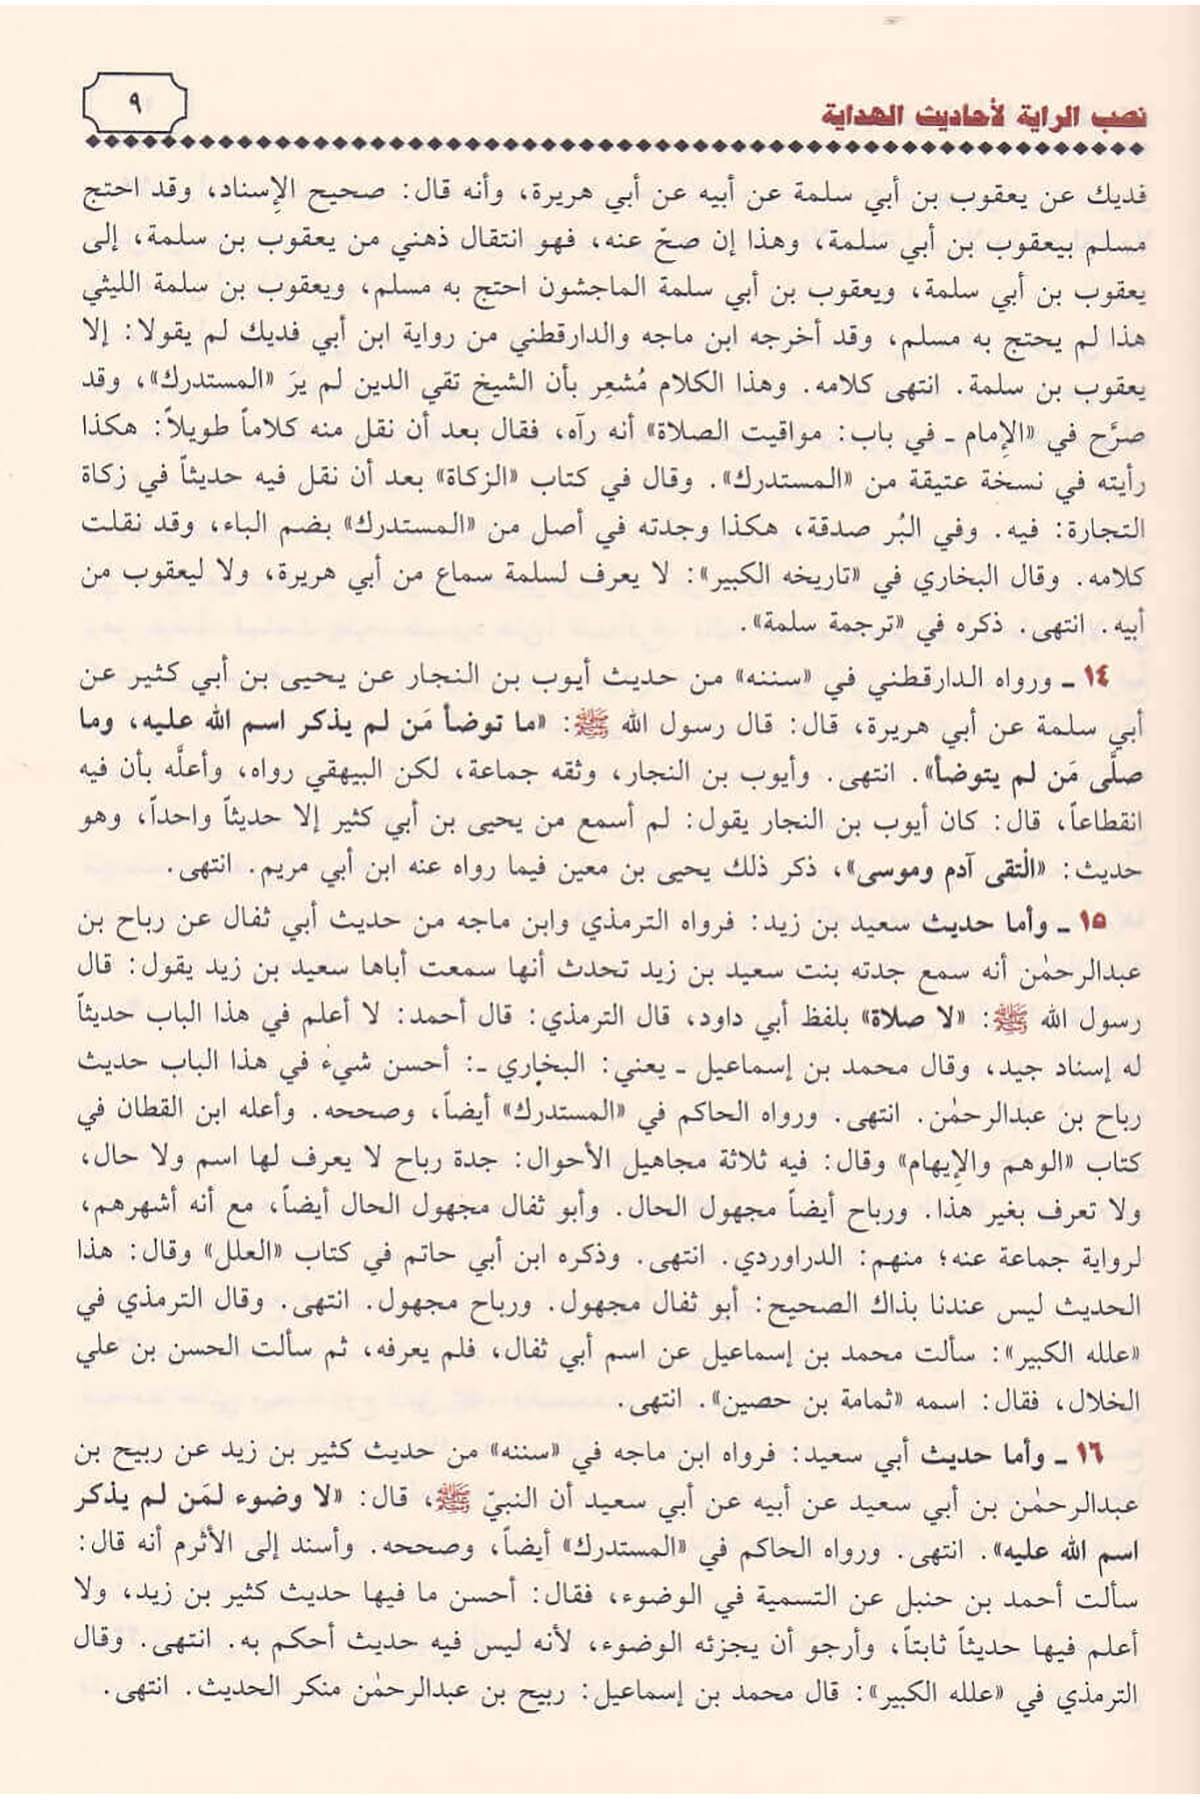 نصب الراية لأحاديث الهداية
٩
فديك عن يعقوب بن أبي سلمة عن أبيه عن أبي هريرة، وأنه قال: صحيح الإِسناد، وقد احتج
مسلم بيعقوب بن أبي سلمة، وهذا إن صحّ عنه، فهو انتقال ذهني من يعقوب بن سلمة، إلى
يعقوب بن أبي سلمة، ويعقوب بن أبي سلمة الماجشون احتج به مسلم، ويعقوب بن سلمة الليثي
هذا لم يحتج به مسلم، وقد أخرجه ابن ماجه والدارقطني من رواية ابن أبي فديك لم يقولا: إلا
يعقوب بن سلمة. انتهى كلامه. وهذا الكلام مُشعِر بأن الشيخ تقي الدين لم يرَ «المستدرك»، وقد
صرَّح في «الإِمام ـ في باب: مواقيت الصلاة» أنه رآه، فقال بعد أن نقل منه كلاماً طويلاً: هكذا
رأيته في نسخة عتيقة من «المستدرك». وقال في كتاب «الزكاة» بعد أن نقل فيه حديثاً في زكاة
التجارة: فيه. وفي البُر صدقة، هكذا وجدته في أصل من «المستدرك» بضم الباء، وقد نقلت
كلامه. وقال البخاري في «تاريخه الكبير»: لا يعرف لسلمة سماع من أبي هريرة، ولا ليعقوب من
أبيه. انتهى. ذكره في «ترجمة سلمة».
١٤ ـ ورواه الدارقطني في «سننه» من حديث أيوب بن النجار عن يحيى بن أبي كثير عن
أبي سلمة عن أبي هريرة، قال: قال رسول الله ﷺ: «ما توضأ مَن لم يذكر اسم الله عليه، وما
صلَّى مَن لم يتوضأ». انتهى. وأيوب بن النجار، وثقه جماعة، لكن البيهقي رواه، وأعلَّه بأن فيه
انقطاعاً، قال: كان أيوب بن النجار يقول: لم أسمع من يحيى بن أبي كثير إلا حديثاً واحداً، وهو
حديث: «الْتقى آدم وموسى»، ذكر ذلك يحيى بن معين فيما رواه عنه ابن أبي مريم. انتهى.
١٥ ـ وأما حديث سعيد بن زيد: فرواه الترمذي وابن ماجه من حديث أبي ثفال عن رباح بن
عبدالرحمٰن أنه سمع جدته بنت سعيد بن زيد تحدث أنها سمعت أباها سعيد بن زيد يقول: قال
رسول الله ﷺ: «لا صلاة» بلفظ أبي داود، قال الترمذي: قال أحمد: لا أعلم في هذا الباب حديثاً
له إسناد جيد، وقال محمد بن إسماعيل ـ يعني: البخاري ـ: أحسن شيء في هذا الباب حديث
رباح بن عبدالرحمٰن. انتهى. ورواه الحاكم في «المستدرك» أيضاً، وصححه. وأعله ابن القطان في
كتاب «الوهم والإِيهام» وقال: فيه ثلاثة مجاهيل الأحوال: جدة رباح لا يعرف لها اسم ولا حال،
ولا تعرف بغير هذا. ورباح أيضاً مجهول الحال. وأبو ثفال مجهول الحال أيضاً، مع أنه أشهرهم،
لرواية جماعة عنه؛ منهم: الدراوردي. انتهى. وذكره ابن أبي حاتم في كتاب «العلل» وقال: هذا
الحديث ليس عندنا بذاك الصحيح: أبو ثفال مجهول. ورباح مجهول. انتهى. وقال الترمذي في
«علله الكبير»: سألت محمد بن إسماعيل عن اسم أبي ثفال، فلم يعرفه، ثم سألت الحسن بن علي
الخلال، فقال: اسمه «ثمامة بن حصين». انتهى.
١٦ ـ وأما حديث أبي سعيد: فرواه ابن ماجه في «سننه» من حديث كثير بن زيد عن ربيح بن
عبدالرحمٰن بن أبي سعيد عن أبيه عن أبي سعيد أن النبيّ ﷺ، قال: «لا وضوء لمَن لم يذكر
اسم الله عليه». انتهى. ورواه الحاكم في «المستدرك» أيضاً، وصححه. وأسند إلى الأثرم أنه قال:
سألت أحمد بن حنبل عن التسمية في الوضوء، فقال: أحسن ما فيها حديث كثير بن زيد، ولا
أعلم فيها حديثاً ثابتاً، وأرجو أن يجزئه الوضوء، لأنه ليس فيه حديث أحكم به. انتهى. وقال
الترمذي في «علله الكبير»: قال محمد بن إسماعيل: ربيح بن عبدالرحمٰن منكر الحديث. انتهى.